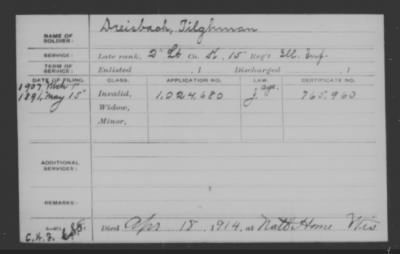 Dreisbach, Tilghman
NAME OF SOLDIER:
SERVICE: Late rank, 2' Lt Co. K, 15 Reg't Ill. Inf.
TERM OF SERVICE: Enlisted , 1 Discharged , 1
DATE OF FILING. CLASS. APPLICATION NO. LAW. CERTIFICATE NO.
1907 Mch 5 age.
1891, May 15 Invalid, 1,024,680 J 765,960
Widow,
Minor,
ADDITIONAL SERVICES:
REMARKS:
Died Apr 18, 1914, at Natl. Home Wis